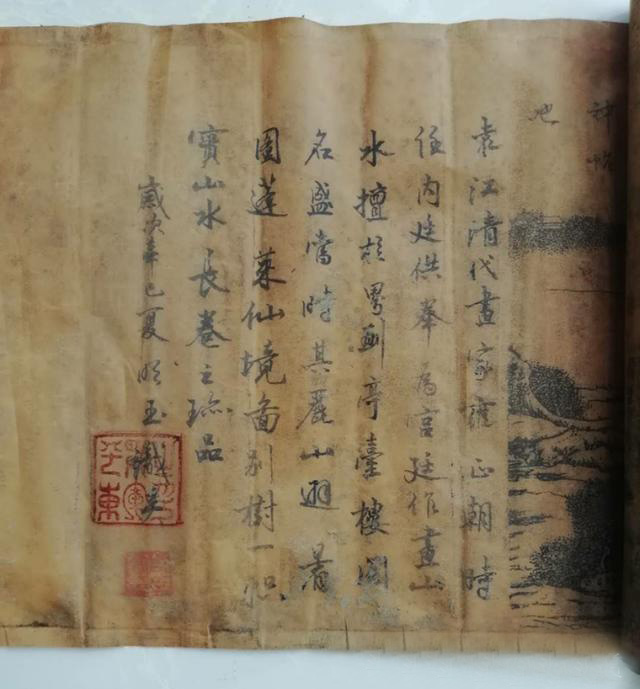 神
也
袁江清代畫家雍正朝時
任內廷供奉為宮廷作畫山
水擅於界劃亭臺樓閣
名盛當時其麗山避暑
圖蓬萊仙境圖別樹一幟
實山水長卷之珍品
歲次辛巳夏 玉